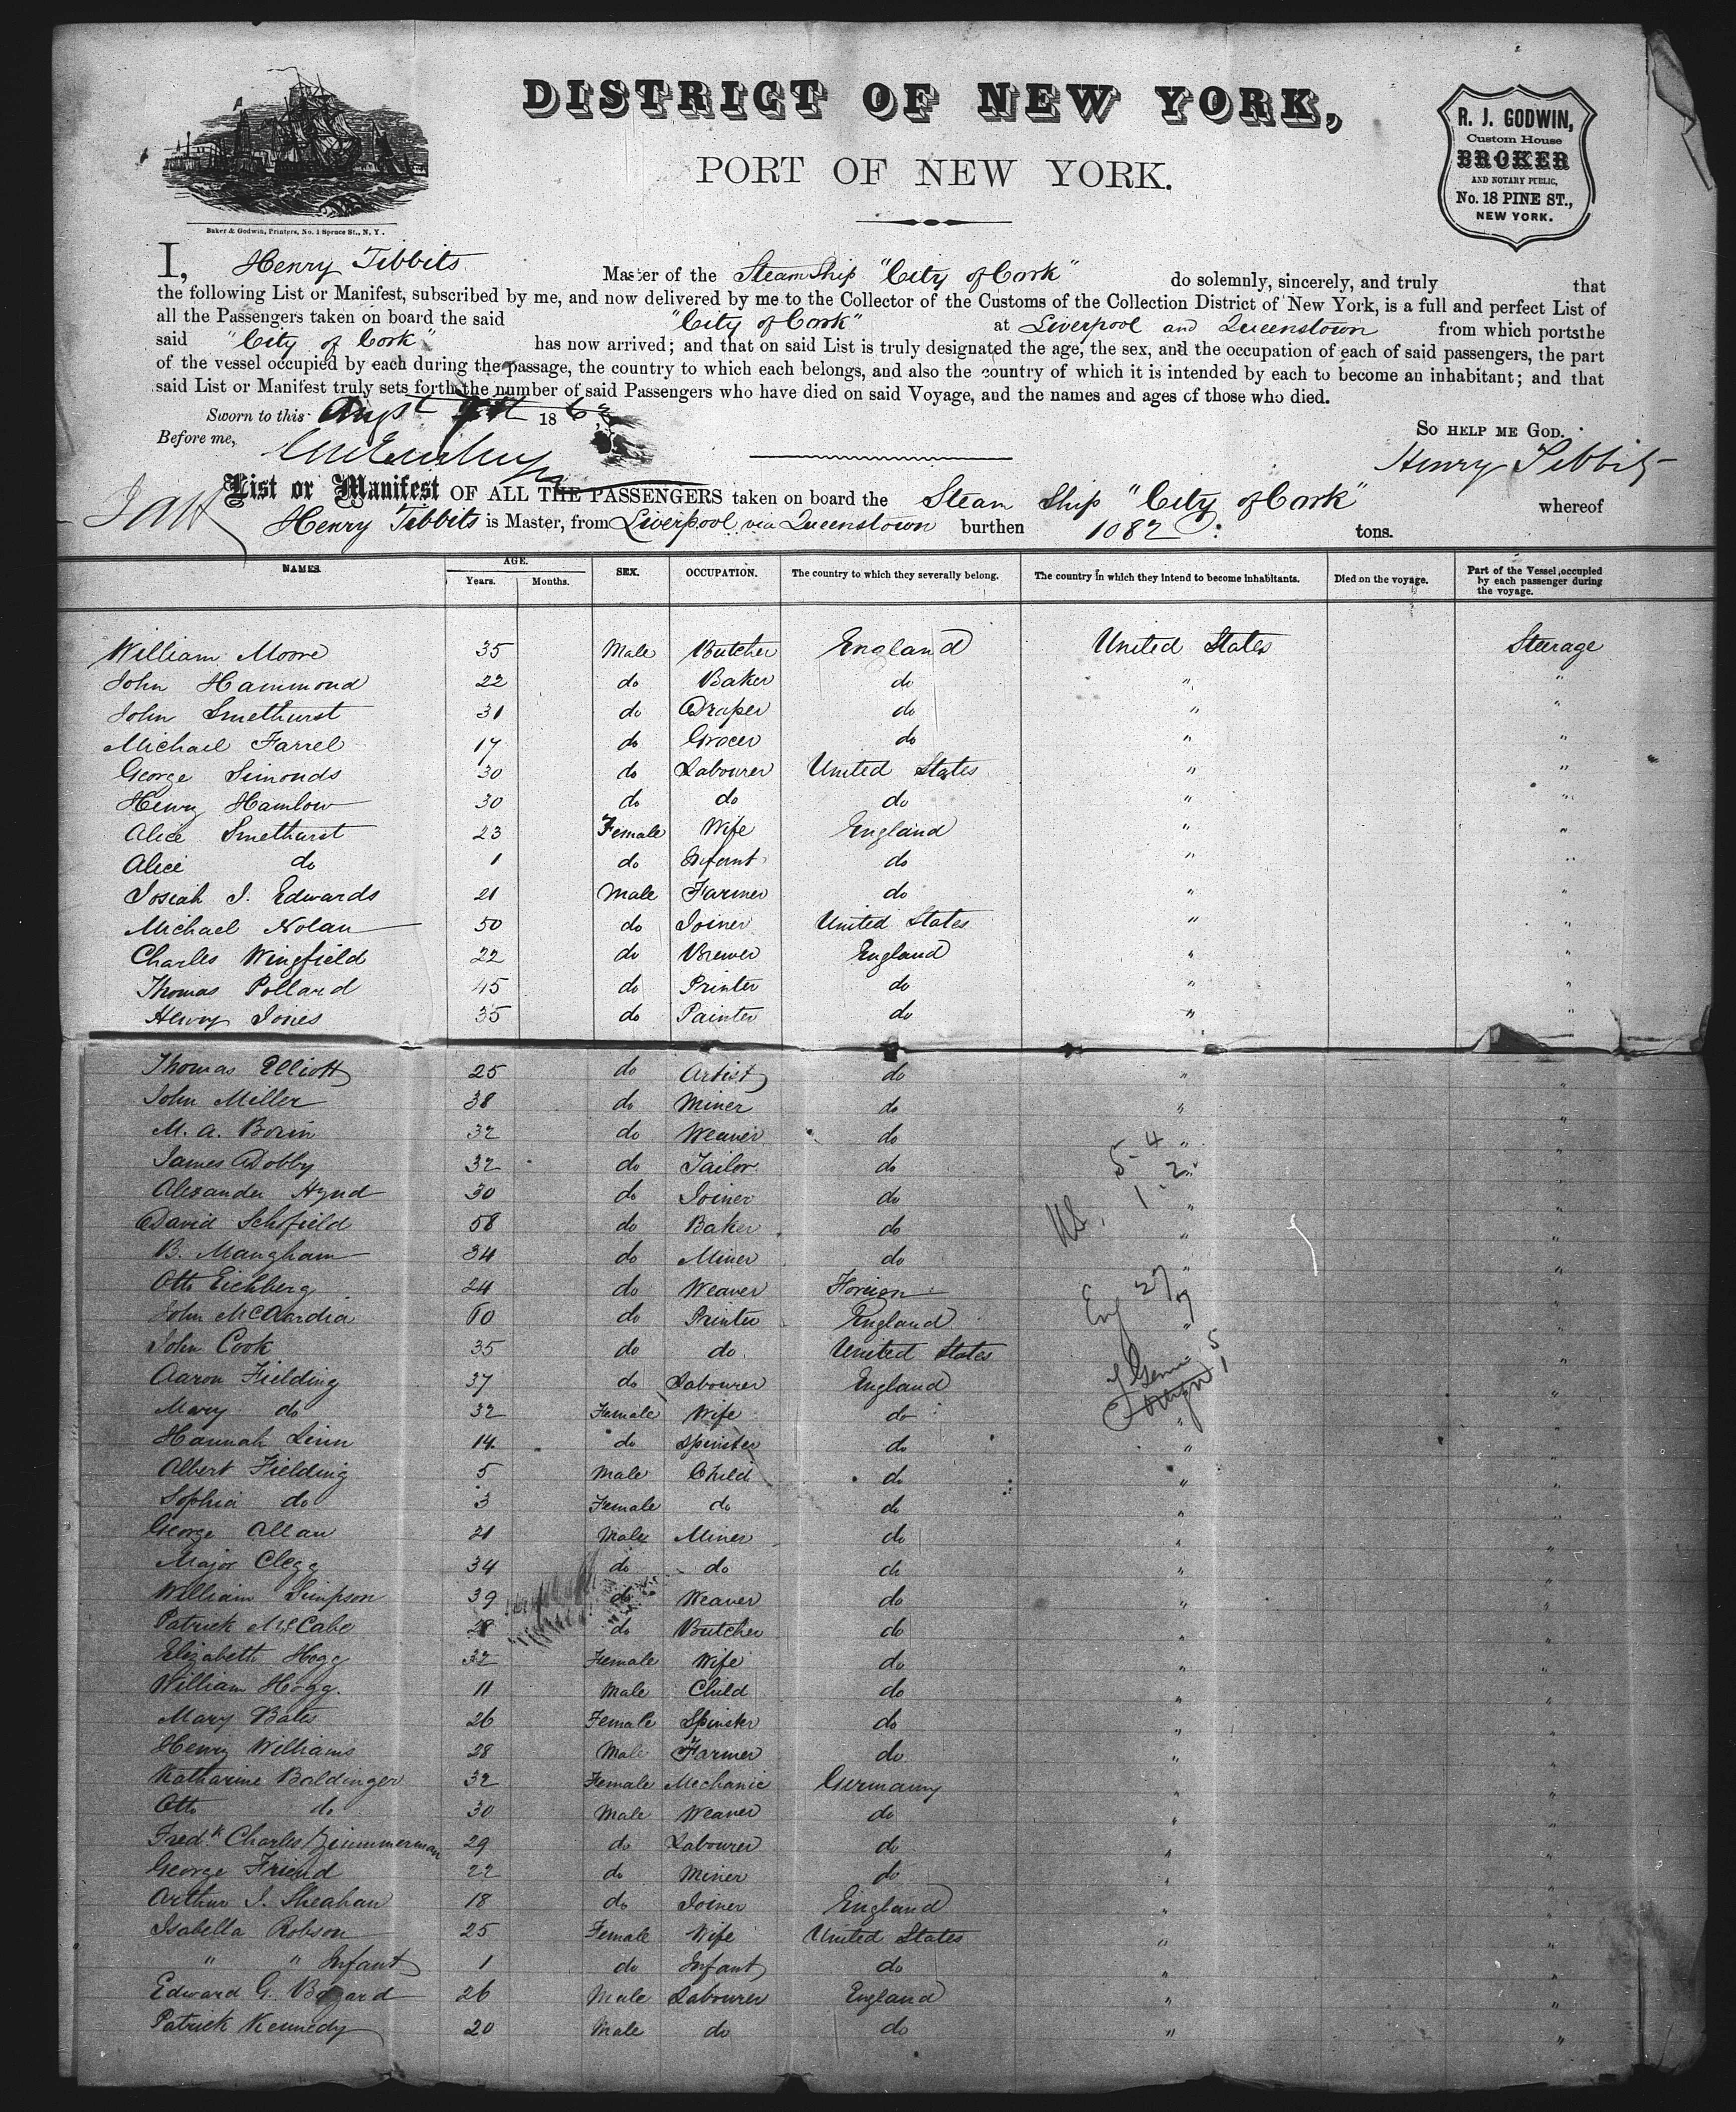 DISTRICT OF NEW YORK,
PORT OF NEW YORK.
R. J. GODWIN,
Custom House
BROKER
AND NOTARY PUBLIC,
No. 18 PINE ST.,
NEW YORK.
Baker & Godwin, Printers, No. 1 Spruce St., N. Y.
I, Henry Tibbits Master of the Steam Ship "City of Cork" do solemnly, sincerely, and truly that
the following List or Manifest, subscribed by me, and now delivered by me to the Collector of the Customs of the Collection District of New York, is a full and perfect List of
all the Passengers taken on board the said "City of Cork" at Liverpool and Queenstown from which ports the
said "City of Cork" has now arrived; and that on said List is truly designated the age, the sex, and the occupation of each of said passengers, the part
of the vessel occupied by each during the passage, the country to which each belongs, and also the country of which it is intended by each to become an inhabitant; and that
said List or Manifest truly sets forth the number of said Passengers who have died on said Voyage, and the names and ages of those who died.
Sworn to this Augst 1863
Before me,
SO HELP ME GOD.
Henry Tibbits
List or Manifest OF ALL THE PASSENGERS taken on board the Steam Ship "City of Cork" whereof
Henry Tibbits is Master, from Liverpool via Queenstown burthen 1082 tons.
NAMES. AGE. Years. Months. SEX. OCCUPATION. The country to which they severally belong. The country in which they intend to become inhabitants. Died on the voyage. Part of the Vessel occupied by each passenger during the voyage.
William Moore 35 Male Butcher England United States Steerage
John Hammond 22 do Baker do " "
John Smethurst 31 do Draper do " "
Michael Farrel 17 do Grocer do " "
George Simonds 30 do Labourer United States " "
Henry Hamlow 30 do do do " "
Alice Smethurst 23 Female Wife England " "
Alice do 1 do Infant do " "
Josiah J. Edwards 21 Male Farmer do " "
Michael Nolan 50 do Joiner United States " "
Charles Wingfield 22 do Brewer England " "
Thomas Pollard 45 do Printer do " "
Henry Jones 35 do Painter do " "
Thomas Elliott 25 do Artist do " "
John Miller 38 do Miner do " "
M. A. Borin 32 do Weaver do " "
James Dobby 32 do Tailor do " "
Alexander Hynd 30 do Joiner do " "
David Schofield 58 do Baker do " "
B. Mangham 34 do Miner do " "
Otto Eichberg 24 do Weaver Foreign " "
John McArdia 60 do Printer England " "
John Cook 35 do do United States " "
Aaron Fielding 37 do Labourer England " "
Mary do 32 Female Wife do " "
Hannah Linn 14 do Spinster do " "
Albert Fielding 5 Male Child do " "
Sophia do 3 Female do do " "
George Allan 21 Male Miner do " "
Major Clegg 34 do do do " "
William Simpson 39 do Weaver do " "
Patrick McCabe 28 do Butcher do " "
Elizabeth Hogg 32 Female Wife do " "
William Hogg 11 Male Child do " "
Mary Bates 26 Female Spinster do " "
Henry Williams 28 Male Farmer do " "
Katharine Boldinger 32 Female Mechanic Germany " "
Otto do 30 Male Weaver do " "
Fredk Charles Zimmerman 29 do Labourer do " "
George Friend 22 do Miner do " "
Arthur J. Sheahan 18 do Joiner England " "
Isabella Robson 25 Female Wife United States " "
" " Infant 1 do Infant do " "
Edward G. Bozard 26 Male Labourer England " "
Patrick Kennedy 20 Male do do " "